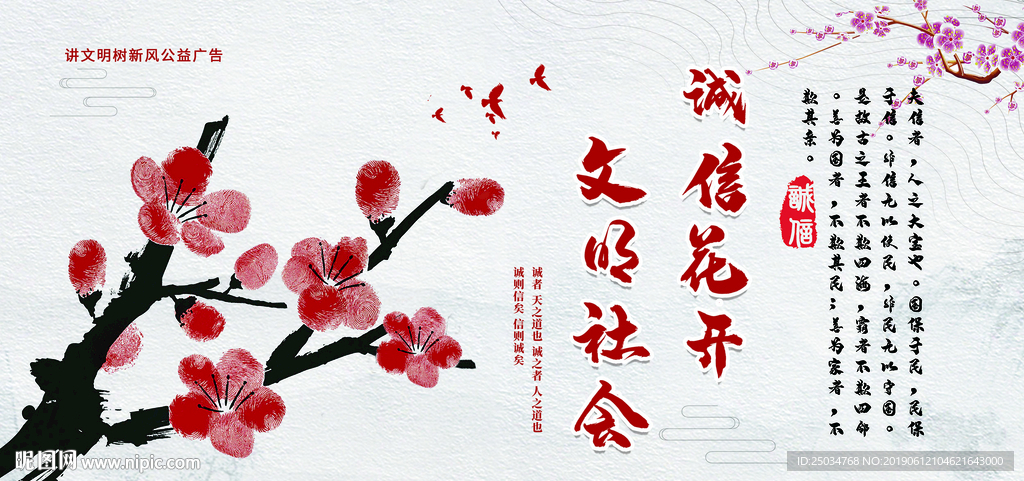 讲文明树新风公益广告
诚信花开
文明社会
诚者 天之道也 诚之者 人之道也
诚则信矣 信则诚矣
夫信者，人之大宝也。国保于民，民保
于信。非信无以使民，非民无以守国。
是故古之王者不欺四海，霸者不欺四邻
。善为国者，不欺其民；善为家者，不
欺其亲。
誠信
昵图网 www.nipic.com
ID:25034768 NO:20190612104621643000